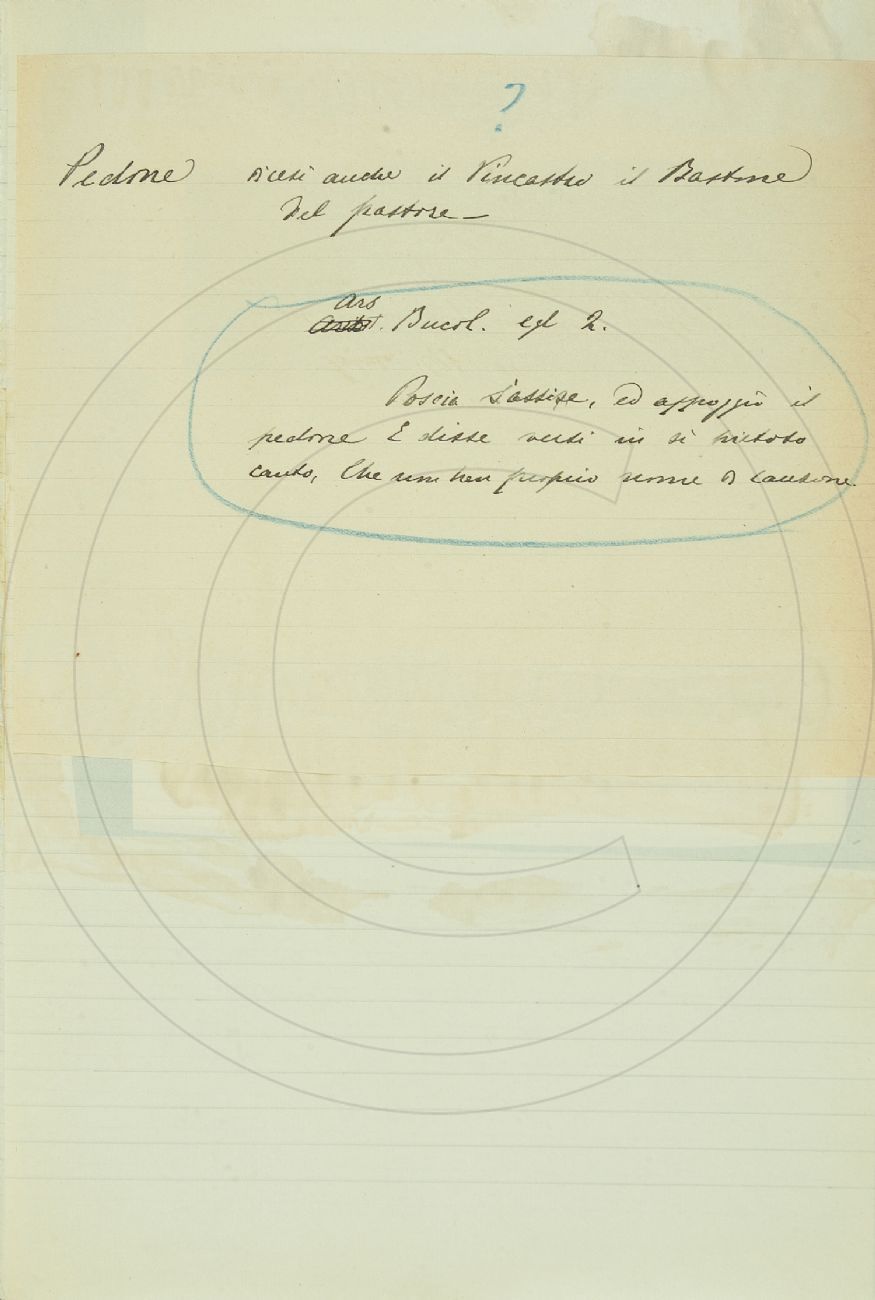 ?
Pedone dicesi anche il Vincastro il Bastone
del pastore —
Ars
Bucol. egl 2.
Poscia s'assise, ed appoggiò il
pedone E disse versi in sì pietoso
canto, Che non han proprio nome di canzone.